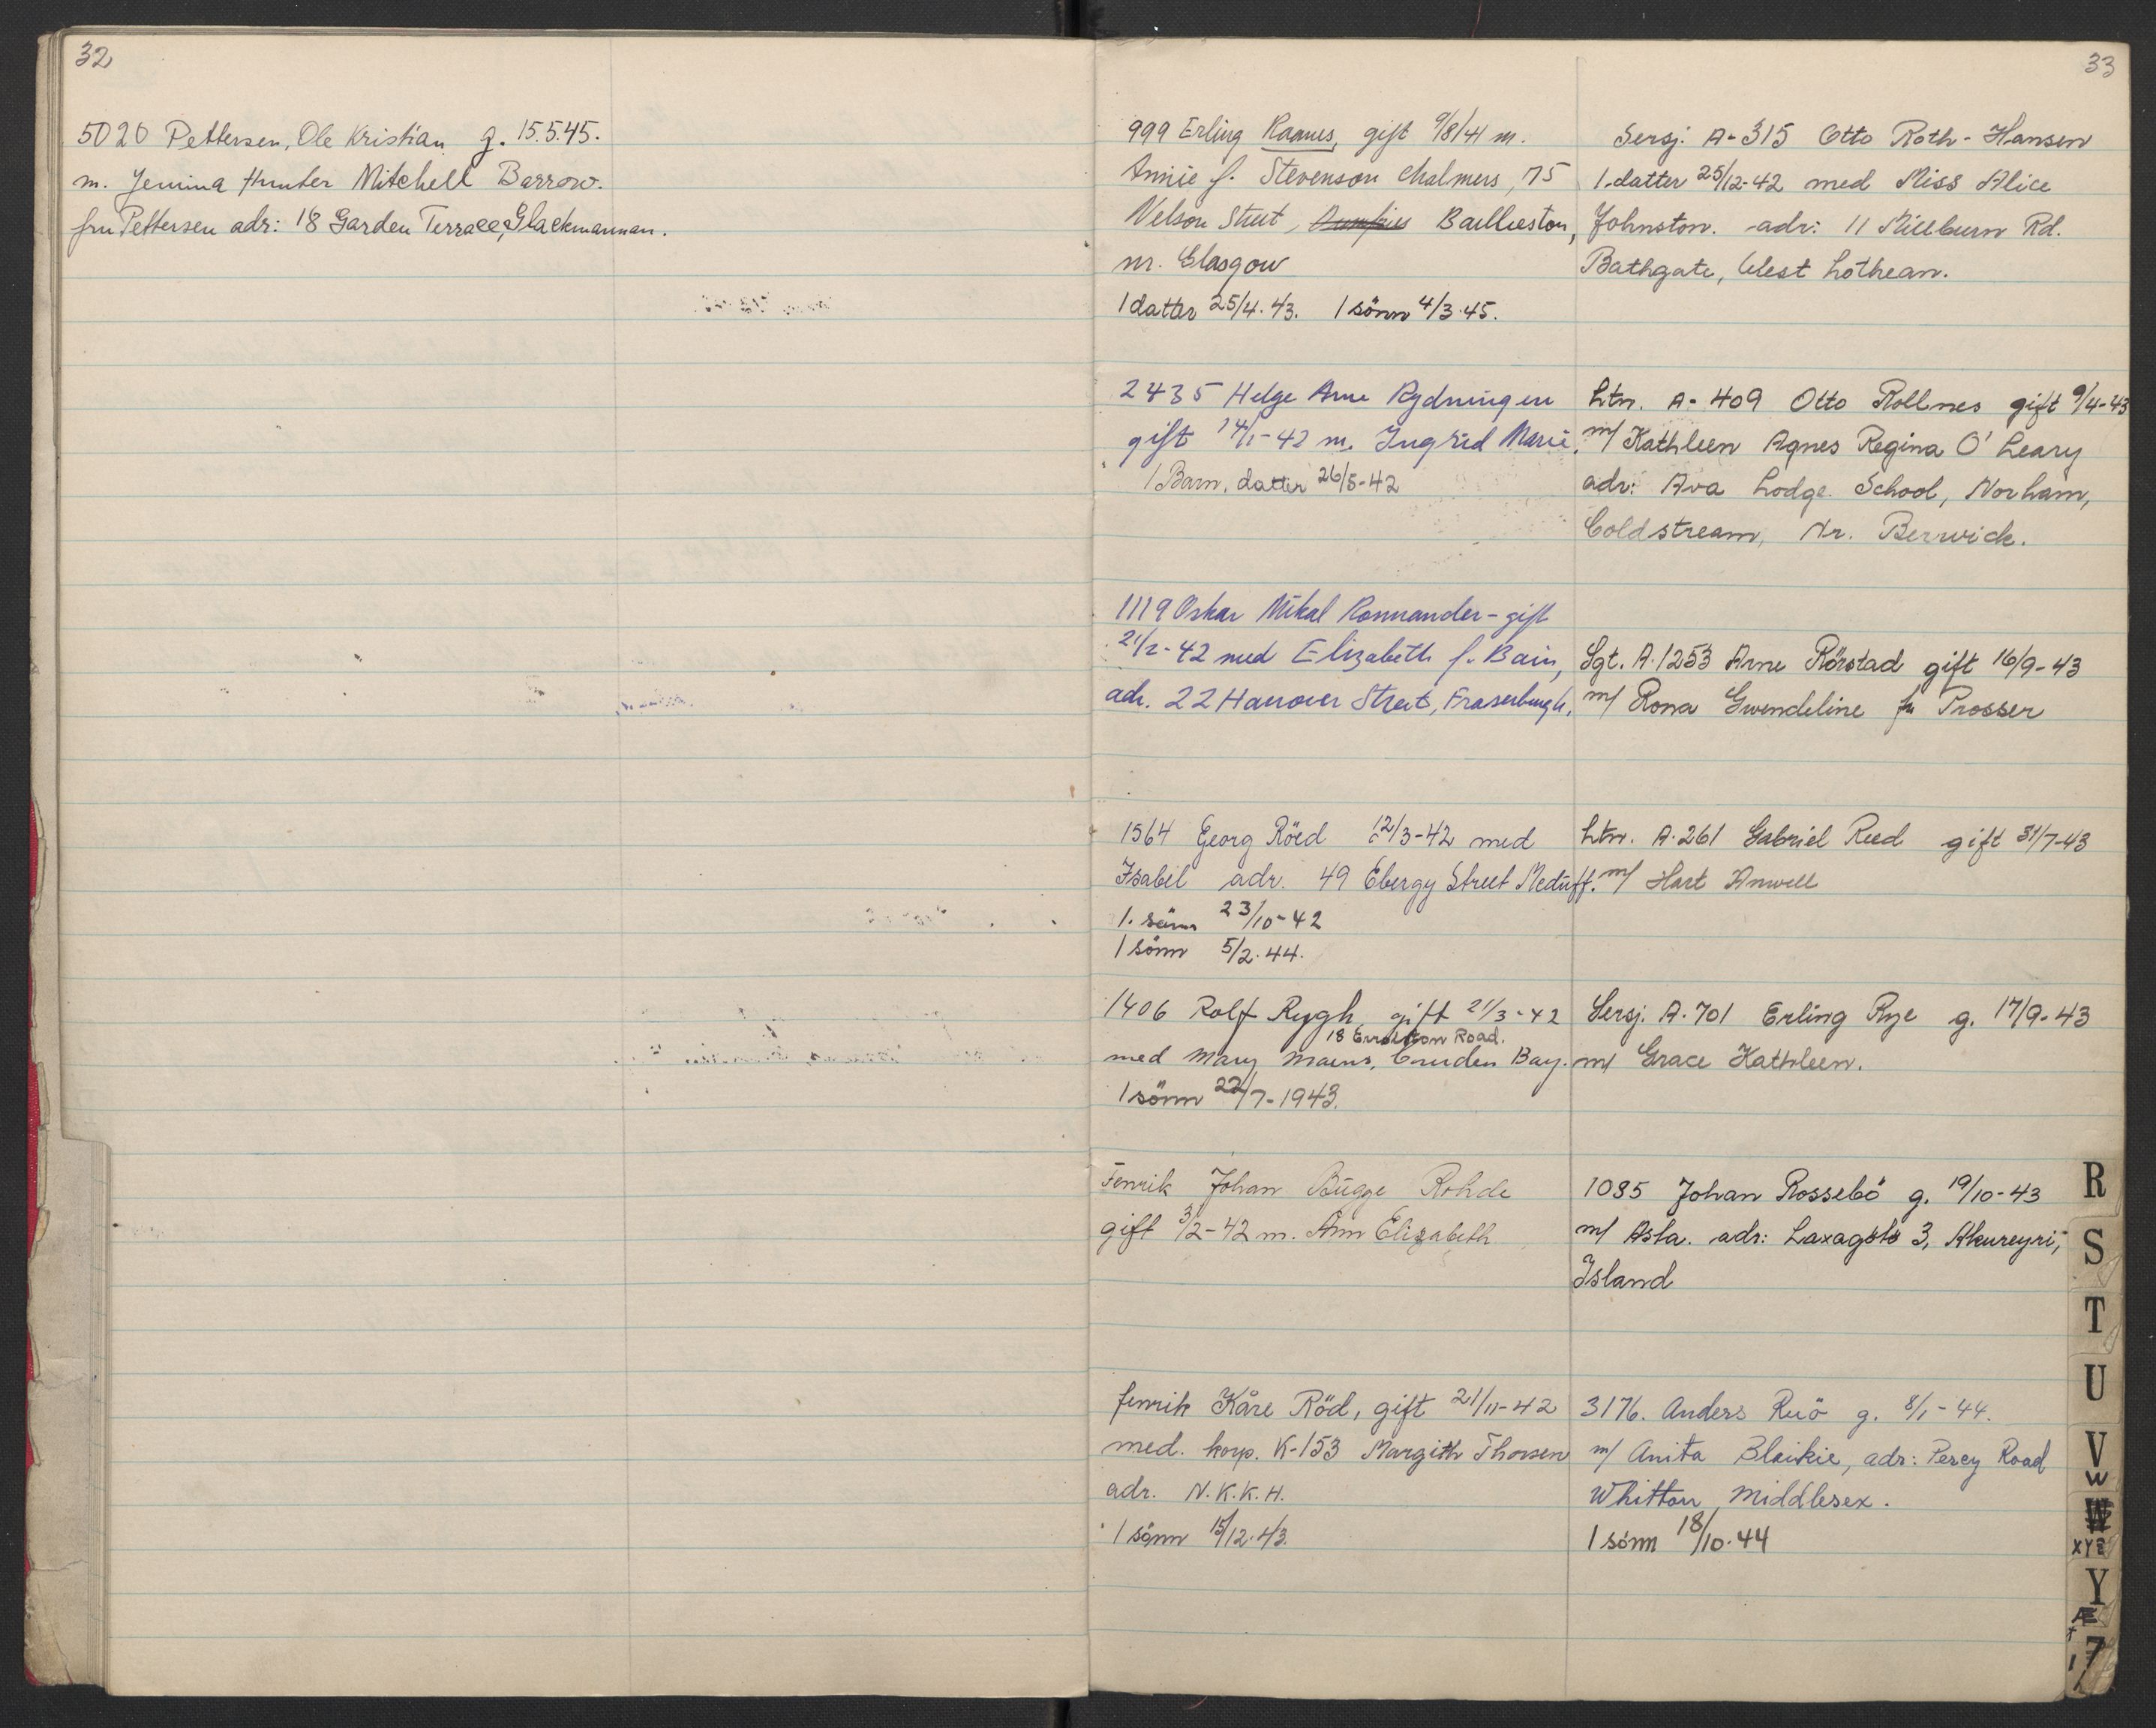 32
5020 Pettersen, Ole Kristian g. 15.5.45.
m. Jemina Hunter Mitchell Barrow.
fru Pettersen adr: 18 Garden Terrace, Glackmannan.
33
999 Erling Raanes, gift 9/8/41 m.
Annie f. Stevenson Chalmers, 75
Nelson Street, Dumfries Baillieston,
nr. Glasgow
1 datter 25/4.43. 1 sönn 4/3.45.
2435 Helge Arne Rydningen
gift 14/1-42 m. Ingrid Marie.
1 Barn, datter 26/5-42
1119 Oskar Mikal Ronnander - gift
21/2-42 med Elizabeth f. Bain,
adr. 22 Hanover Street, Fraserburgh.
1564 Georg Röed 12/3-42 med
Isabel adr. 49 Ebergy Street Mcduff.
1. sönn 23/10-42
1 sönn 5/2.44.
1406 Rolf Rygh gift 21/3-42
18 Errolston Road.
med Mary Mains, Cruden Bay.
1 sönn 22/7-1943.
Fenrik Johan Bugge Rohde
gift 3/2-42 m. Ann Elizabeth
fenrik Kåre Röd, gift 21/11-42
med. korp. K-153 Margith Thorsen
adr. N.K.K.H.
1 sönn 15/12.43.
Sersj. A-315 Otto Roth-Hansen
1.datter 25/12-42 med Miss Alice
Johnston. adr: 11 Millburn Rd.
Bathgate, West Lothean.
Ltn. A-409 Otto Rollnes gift 9/4-43
m/ Kathleen Agnes Regina O'Leary
adr: Ava Lodge School, Norham,
Coldstream, Nr. Berwick.
Sgt. A.1253 Arne Rörstad gift 16/9-43
m/ Rona Gwendeline fr Prosser
Ltn. A.261 Gabriel Reed gift 31/7-43
m/ Hart Anwell
Sersj. A.701 Erling Rye g. 17/9-43
m/ Grace Kathleen.
1085 Johan Rossebö g. 19/10-43
m/ Asta. adr: Laxagöts 3, Akureyri,
Island
3176. Anders Ruö g. 8/1-44.
m/ Anita Blaikie, adr: Percy Road
Whitton, Middlesex.
1 sönn 18/10.44
R
S
T
U
V
W
W
XYZ
Y
Æ
Z